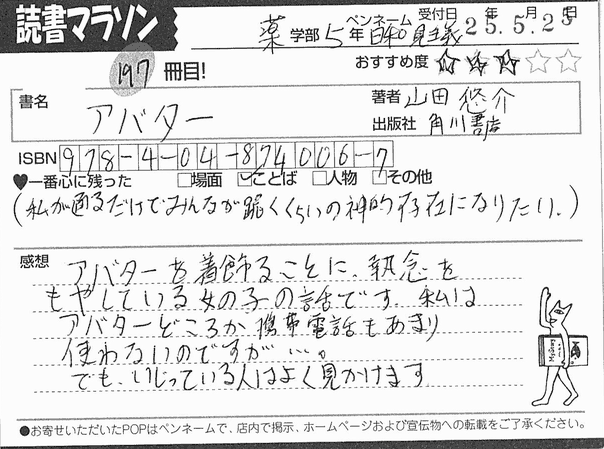 読書マラソン
197冊目!
薬 学部 5年 ペンネーム 日和見主義 受付日 25年5月23日
おすすめ度 ★★★☆☆
書名 アバター
著者 山田 悠介
出版社 角川書店
ISBN 978-4-04-874006-7
♥一番心に残った □場面 ☑ことば □人物 □その他
(私が通るだけでみんなが跪くくらいの神的存在になりたい。)
感想 アバターを着飾ることに、執念を
もやしている女の子の話です。私は
アバターどころか携帯電話もあまり
使わないのですが…。
でも、いじっている人はよく見かけます
●お寄せいただいたPOPはペンネームで、店内で掲示、ホームページおよび宣伝物への転載をご了承ください。